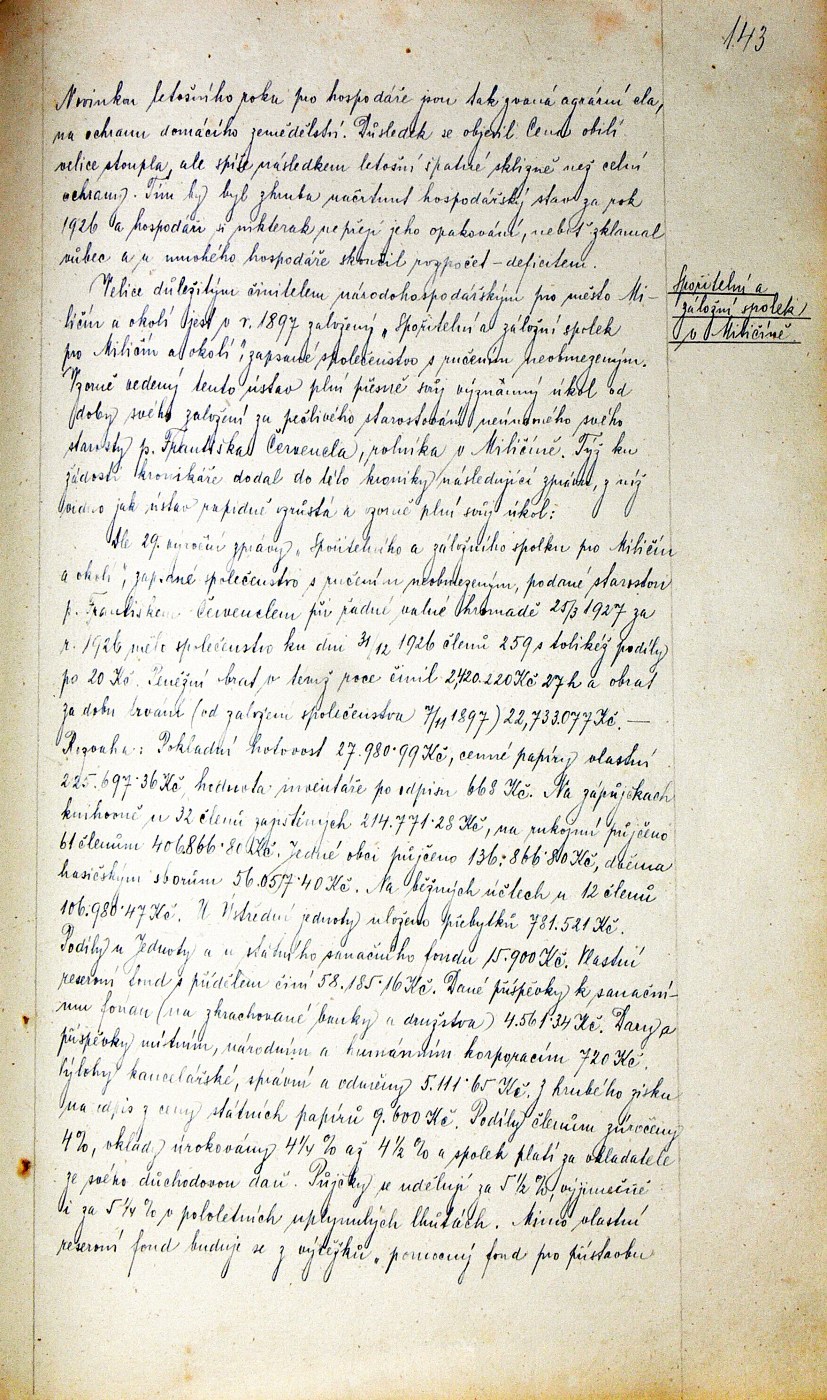 143
Novinkou letošního roku pro hospodáře jsou tak zvaná agrární cla,
na ochranu domácího zemědělství. Důsledek se objevil. Cena obilí
velice stoupla, ale spíše následkem letošní špatné sklizně než celní
ochrany. Tím by byl zhruba načrtnut hospodářský stav za rok
1926 a hospodáři si nikterak nepřejí jeho opakování, neboť zklamal
vůbec a u mnohého hospodáře skončil rozpočet – deficitem.
Velice důležitým činitelem národohospodářským pro město Mi-
ličín a okolí jest v r. 1897 založený „Spořitelní a záložní spolek
pro Miličín a okolí", zapsané společenstvo s ručením neobmezeným.
Vzorně vedený tento ústav plní přesně svůj význačný úkol od
doby svého založení za pečlivého starostování neúnavného svého
starosty p. Františka Červencla, rolníka v Miličíně. Týž ku
žádosti kronikáře dodal do této kroniky následující zprávu, z níž
vidno jak ústav rapidně vzrůstá a vzorně plní svůj úkol:
Spořitelní a
záložní spolek
v Miličíně.
Dle 29. výroční zprávy „Spořitelního a záložního spolku pro Miličín
a okolí", zapsané společenstvo s ručením neobmezeným, podané starostou
p. Františkem Červenclem při řádné valné hromadě 25/3 1927 za
r. 1926 mělo společenstvo ku dni 31/12 1926 členů 259 s tolikéž podíly
po 20 Kč. Peněžní obrat v témž roce činil 2,420.220 Kč 27 h a obrat
za dobu trvání (od založení společenstva 7/11 1897) 22,733.077 Kč. —
Rozvaha: Pokladní hotovost 27.980·99 Kč, cenné papíry vlastní
225.697·36 Kč, hodnota inventáře po odpisu 668 Kč. Na zápůjčkách
knihovně u 32 členů zajištěných 214.771·28 Kč, na rukojmí půjčeno
61 členům 406.866·80 Kč. Jedné obci půjčeno 136.866·80 Kč, dvěma
hasičským sborům 56.057·40 Kč. Na běžných účtech u 12 členů
106.980·47 Kč. U Ústřední jednoty uloženo přebytků 781.521 Kč.
Podíly u Jednoty a u státního sanačního fondu 15.900 Kč. Vlastní
reservní fond s přídělem činí 58.185·16 Kč. Dané příspěvky k sanační-
mu fondu (na zkrachované banky a družstva) 4.561·34 Kč. Dary a
příspěvky místním, národním a humánním korporacím 720 Kč.
Výlohy kancelářské, správní a odměny 5.111·65 Kč. Z hrubého zisku
na odpis z ceny státních papírů 9.600 Kč. Podíly členům zúročeny
4%, vklady úrokovány 4¼ % až 4½ % a spolek platí za vkladatele
ze svého důchodovou daň. Půjčky se udělují za 5½ %, výjimečně
i za 5¼ % v pololetních uplynulých lhůtách. Mimo vlastní
reservní fond buduje se z výtěžků „pomocný fond pro přístavbu